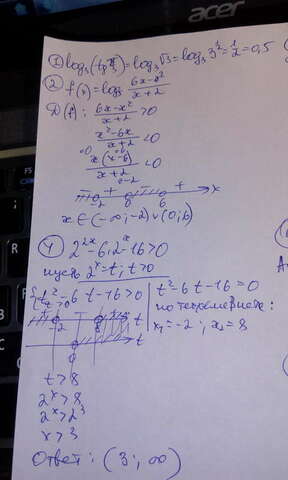 acer
① log₃(tg π/3) = log₃√3 = log₃3^½ = ½ = 0,5
② f(x) = log₅ (6x-x²)/(x+2)
D(f): (6x-x²)/(x+2) > 0
(x²-6x)/(x+2) < 0
x(x-6)/(x+2) < 0
− + − + x
-2 0 6
x ∈ (-∞;-2) ∪ (0;6)
④ 2^2x - 6·2^x - 16 > 0
пусть 2^x = t, t > 0
{ t² - 6t - 16 > 0
t > 0
t² - 6t - 16 = 0
по теореме Виета:
x₁ = -2; x₂ = 8
-2 8 t
0 t
t > 8
2^x > 8
2^x > 2³
x > 3
Ответ: (3; ∞)